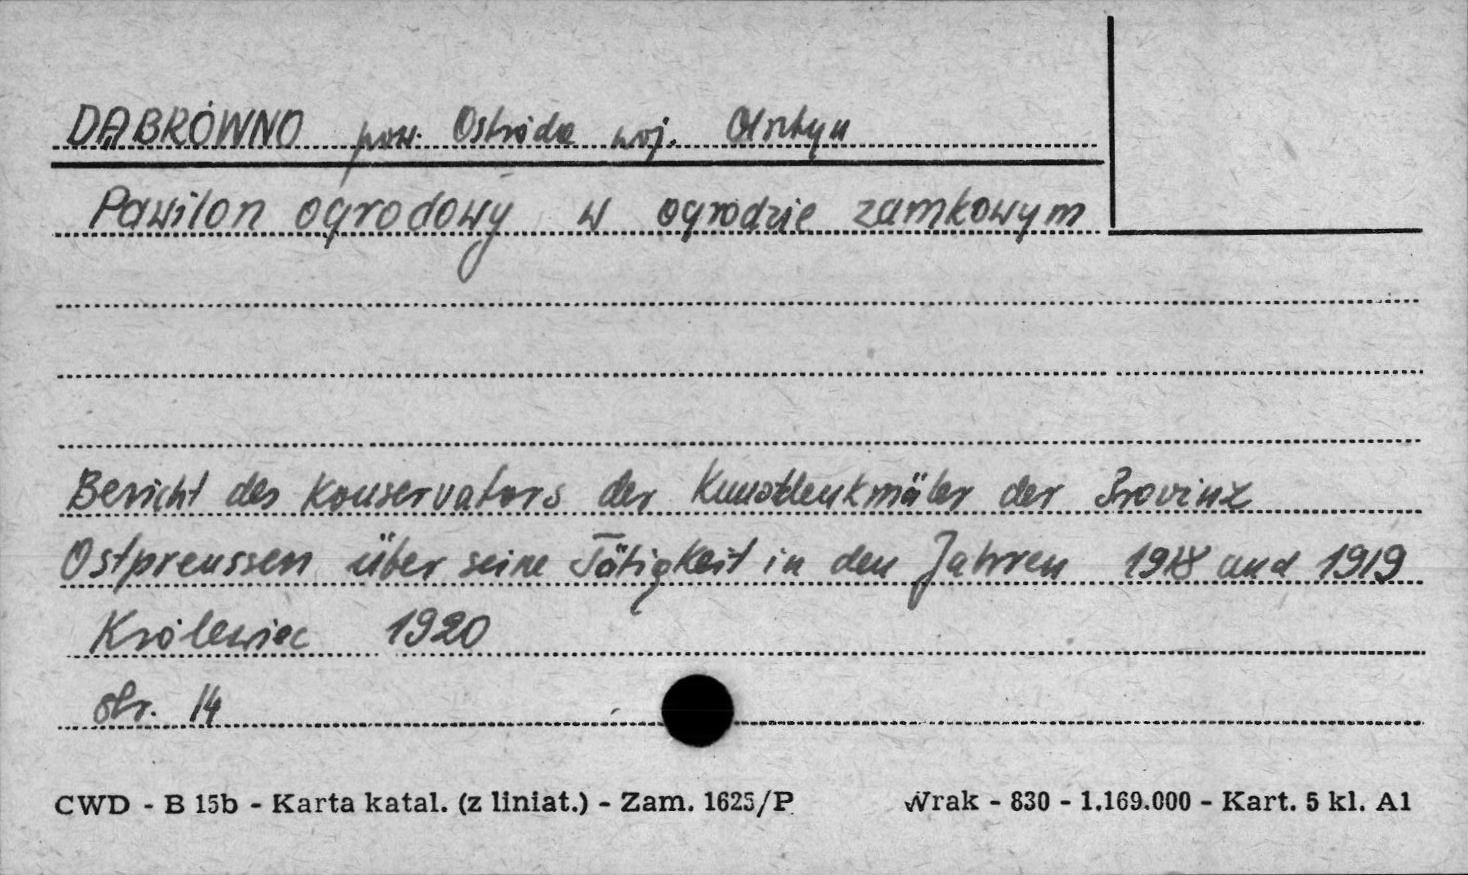 DĄBRÓWNO pow. Ostróda woj. Olsztyn
Pawilon ogrodowy w ogrodzie zamkowym
Bericht des Konservators der Kunstdenkmäler der Provinz
Ostpreussen über seine Tätigkeit in den Jahren 1918 und 1919
Królewiec 1920
str. 14
CWD - B 15b - Karta katal. (z liniat.) - Zam. 1625/P Wrak - 830 - 1.169.000 - Kart. 5 kl. A1